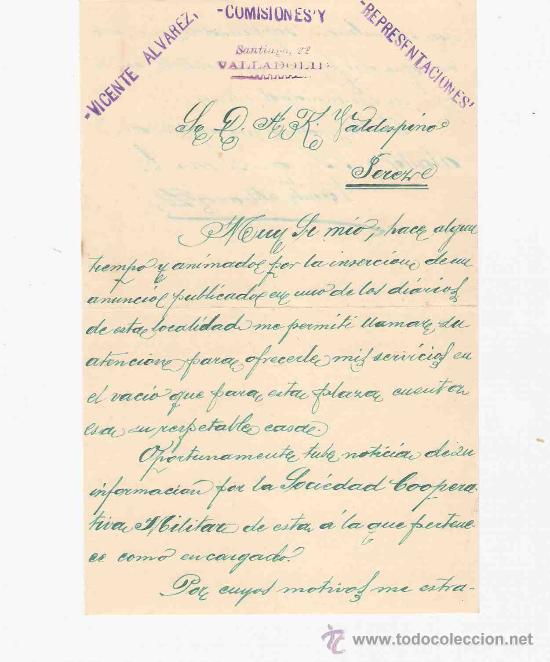 -VICENTE ALVAREZ,-
-COMISIONES Y
-REPRESENTACIONES-
Santiago, 22
VALLADOLID
Sr. D. A. R. Valdespino
Jerez
Muy Sr mio, hace algun
tiempo y animado por la insercion de un
anuncio publicado en uno de los diarios
de esta localidad me permiti llamar su
atencion para ofrecerle mis servicios en
el vacio que para esta plaza cuenta
esa su respetable casa.
Oportunamente tube noticia de su
informacion por la Sociedad Coopera-
tiva Militar de esta á la que pertene
ce como encargado.
Por cuyos motivos me estra-
todocoleccion
www.todocoleccion.net